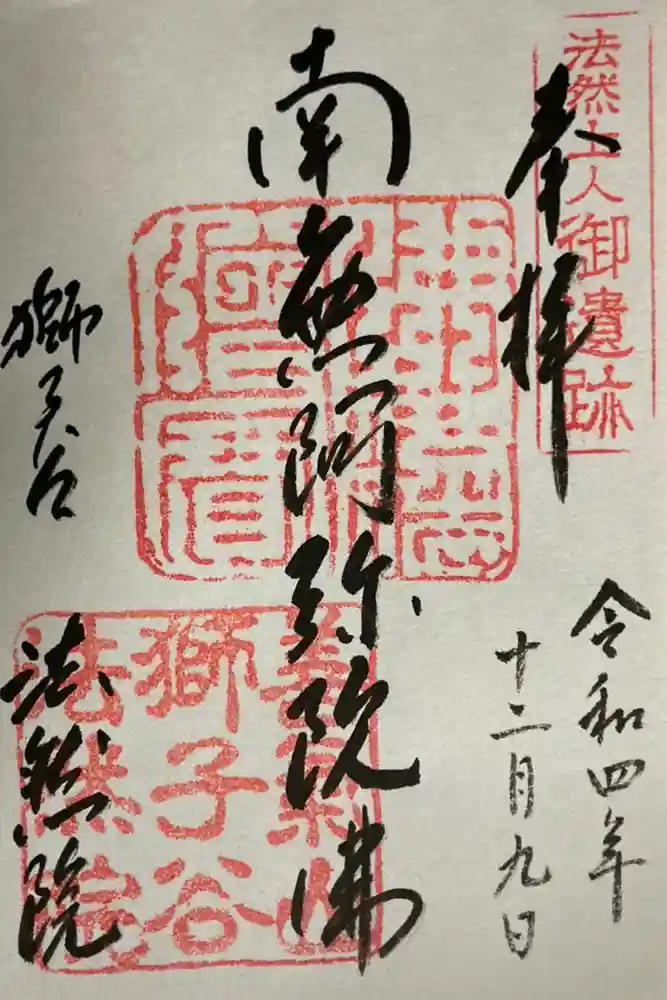 法然上人御遺跡
奉拝
令和四年
十二月九日
南無阿弥陀佛
獅子谷
法然院
善氣山
獅子谷
法然院